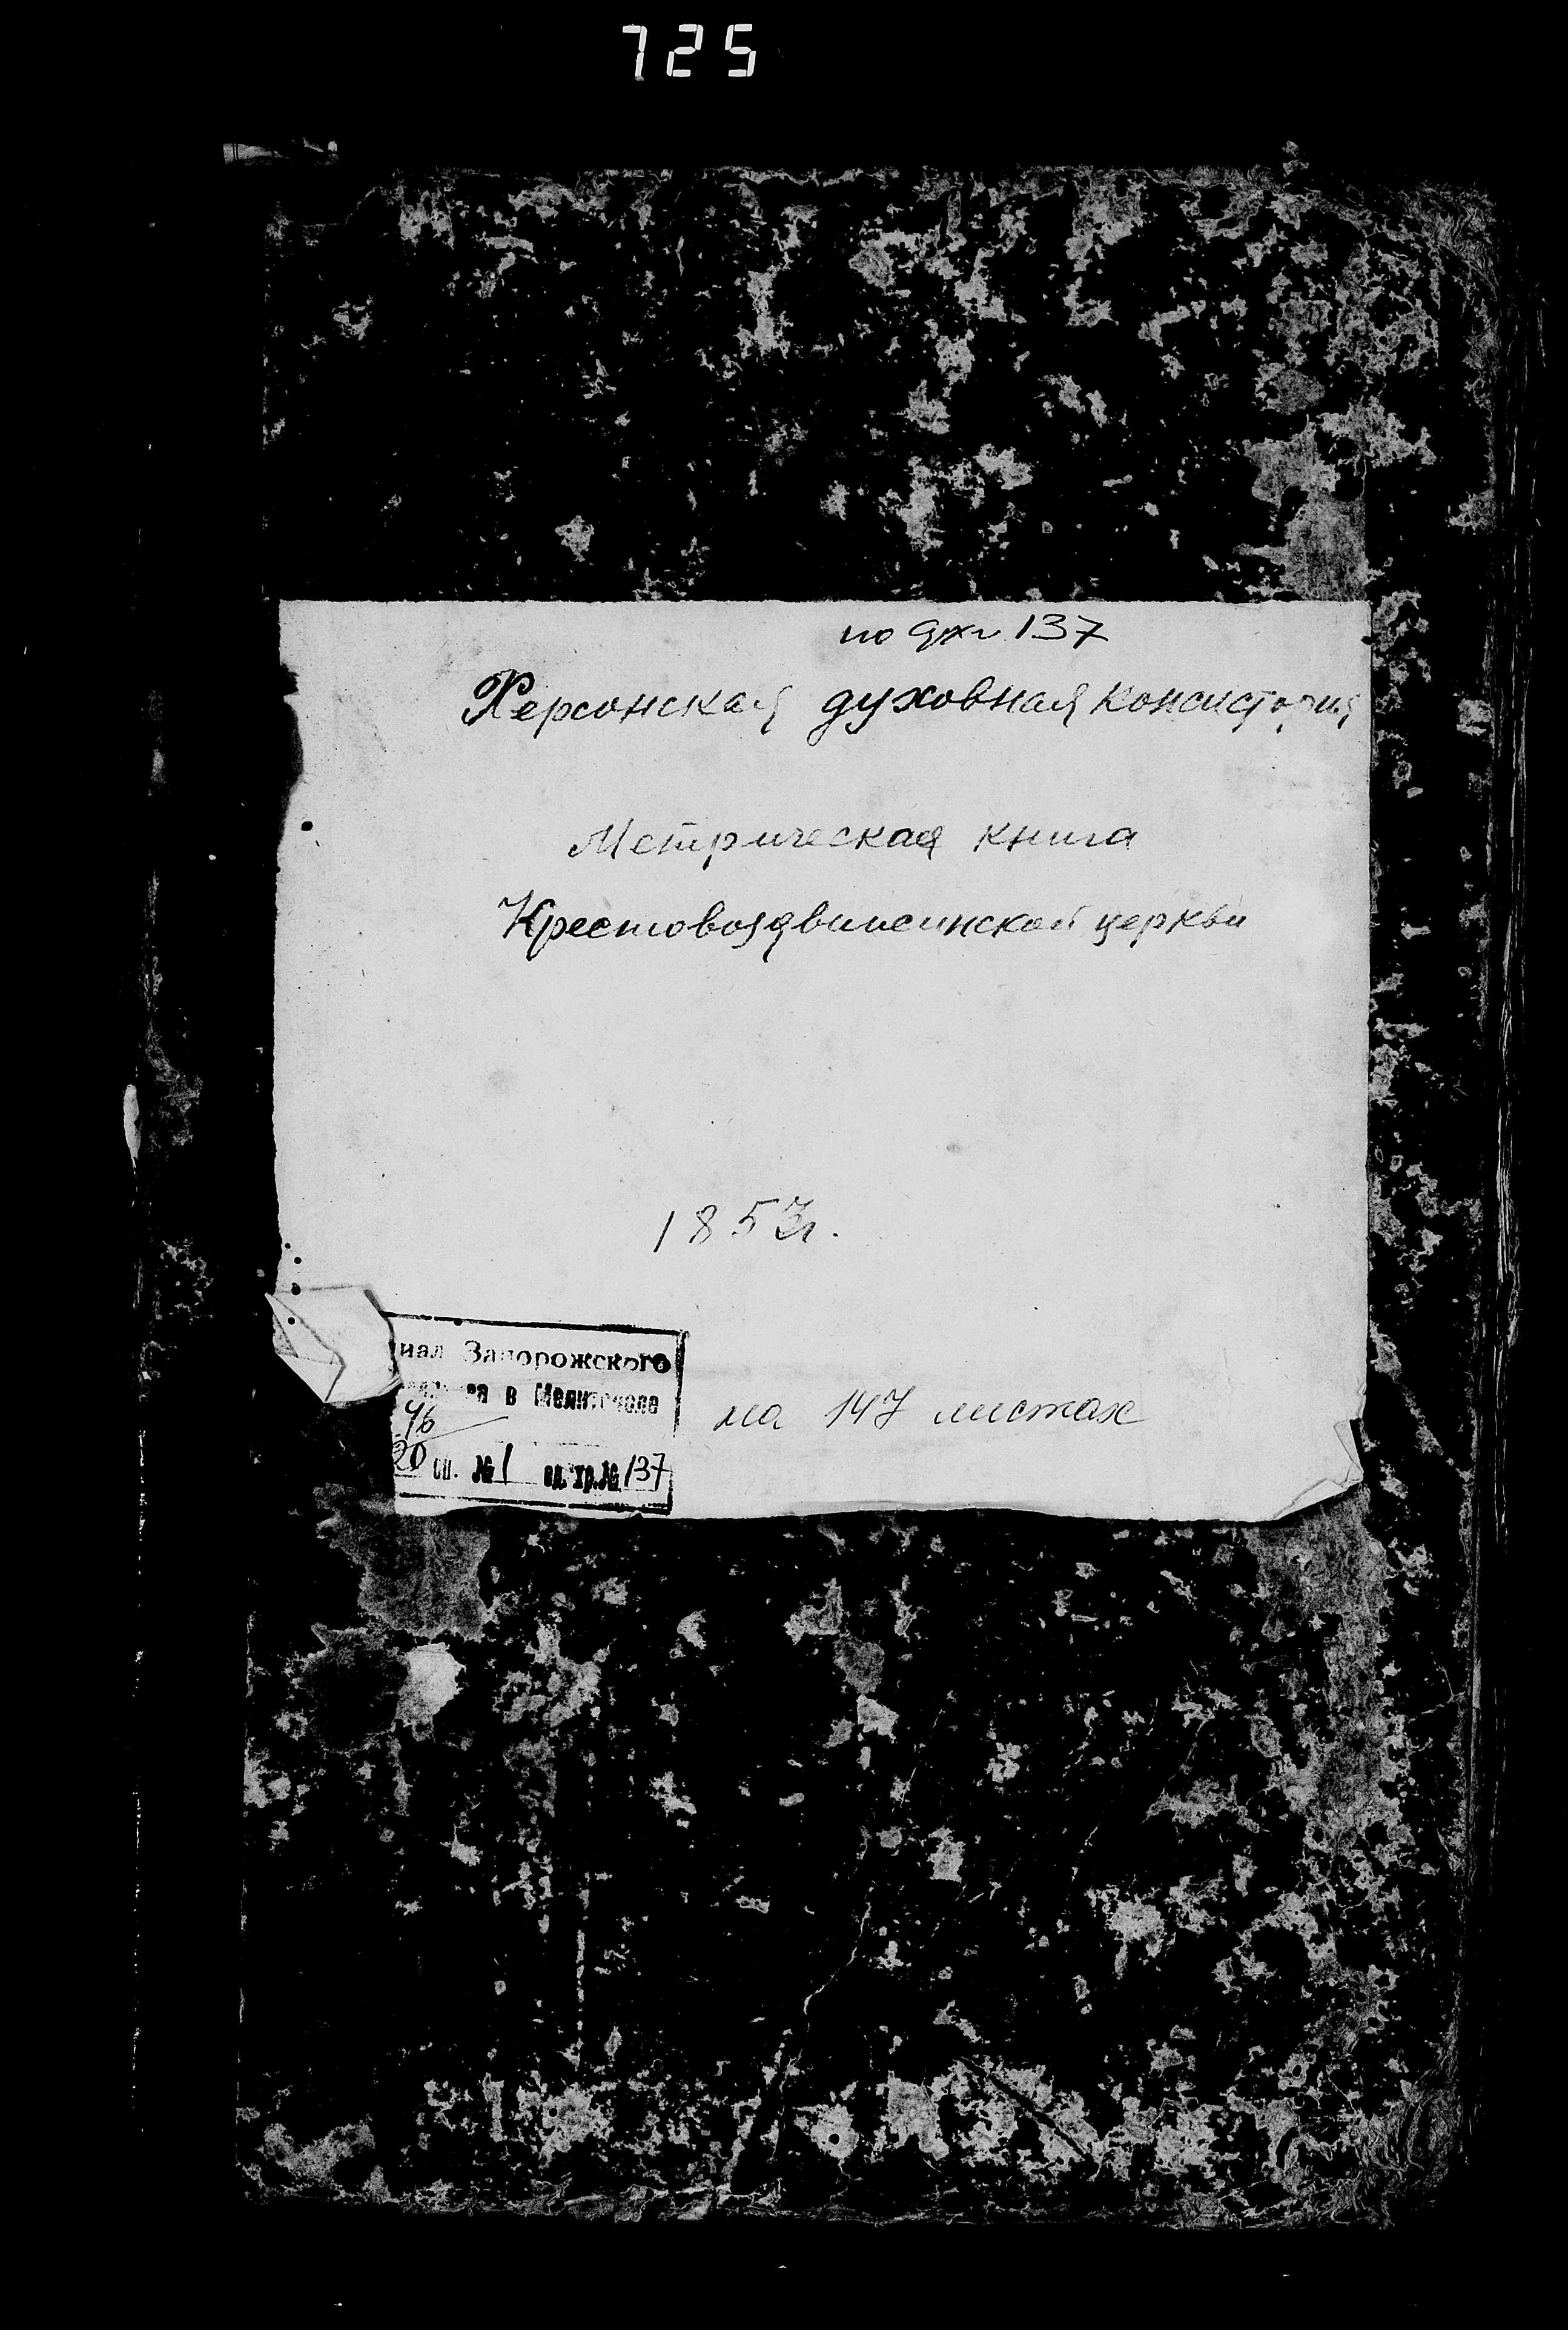 725
137
Херсонская духовная консистория
Метрическая книга
Крестовоздвиженской церкви
185 г.
нал Запорожского
в Мелитополе
46
20 оп. №1 ед. хр. № 137
на 147 листах